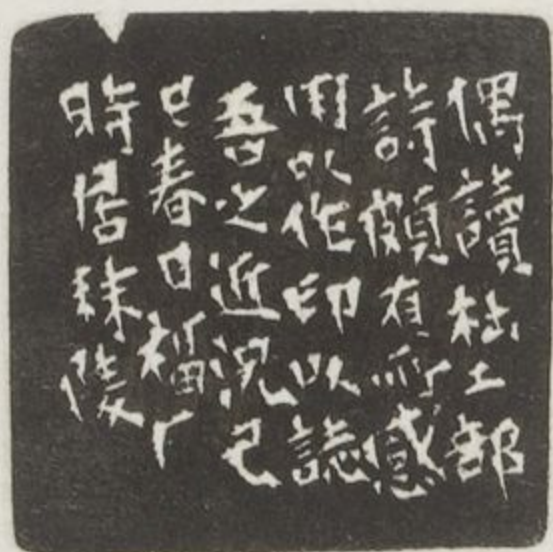 偶讀杜工部
詩頗有所感
用以作印以誌
吾之近況己
巳春日福厂
時居秣陵